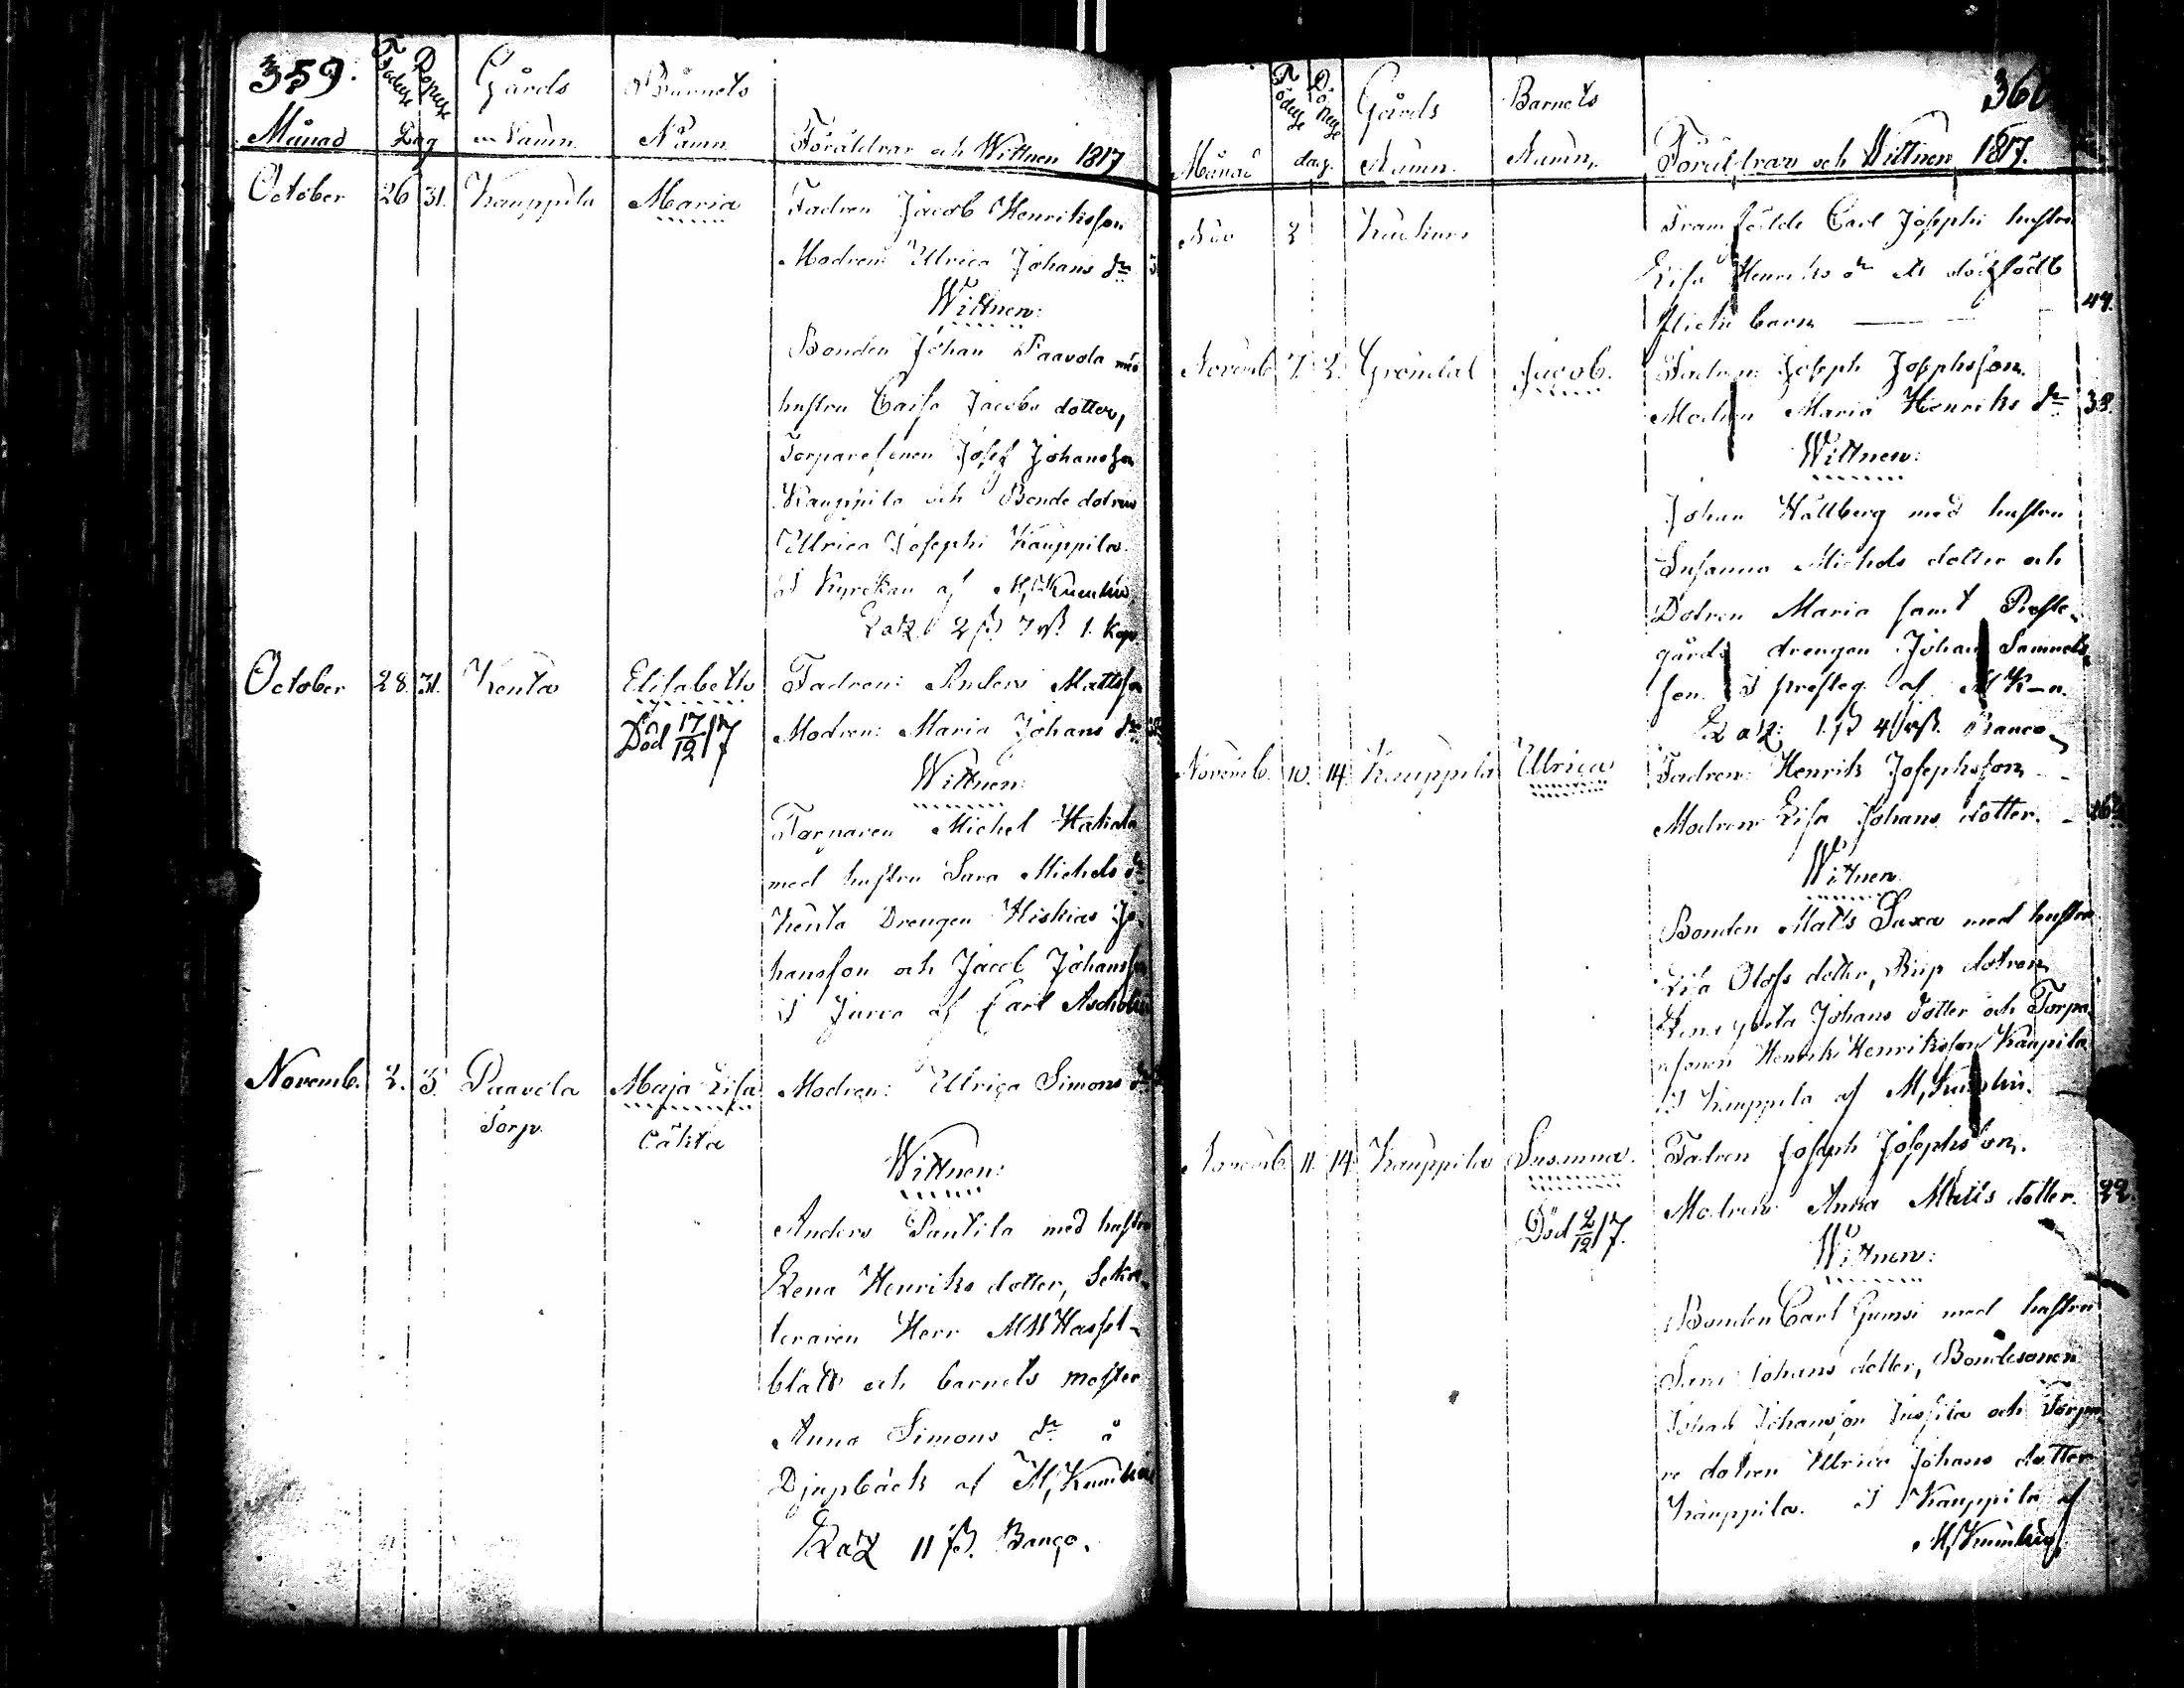 359.
Månad
Födelse
Döpelse
Dag
Gårds
Namn.
Barnets
Namn.
Föräldrar och Wittnen 1817
October 26 31. Kauppila Maria Fadren Jacob Henriksson
Modren: Ulrica Johans dr
Wittnen:
Bonden Johan Paavola med
hustru Caisa Jacobs dotter,
Torparesonen Josef Johansson
Kauppila och Bonde dotren
Ulrica Josephi Kauppila
I Kyrckan af M, Kumlin
2 ß 7 rß 1. Kop.
October 28. 31. Kenta Elisabeth Fadren: Anders Mattsson
Död 17/12 17 Modren: Maria Johans dr
Wittnen:
Torparen Michel Hakala
med hustru Sara Michels dr
Kenta Drengen Hiskias Jo-
hansson och Jacob Johansson
I Jurva af Carl Ascholin
Novemb. 2. 3. Paavola Maja Lisa Modren: Ulrica Simons dr
Torp. oäkta
Wittnen:
Anders Pantila med hustru
Lena Henriks dotter, Sekre-
teraren Herr M W Hassel-
blatt och barnets moster
Anna Simons dr å
Djupbäck af M, Kumlin
11 ß. Banco.
360
Månad
Födelse
Döpelse
dag.
Gårds
Namn.
Barnets
Namn.
Föräldrar och Wittnen 1817.
Nov 2 Framfödde Carl Josephi hustru
Lisa Henriks dr et dödfödt
flicke barn 44.
Novemb. 2. Gröndal Jacob. Fadren: Joseph Josephsson.
Modren Maria Henriks dr 38.
Wittnen:
Johan Hällberg med hustru
Susanna Michels dotter och
Dotren Maria samt Preste-
gårds drengen Johan Samuels
son. I presteg. af M K-n.
1. ß 4 rß. Banco
Novemb. 10. 14. Kauppila Ulrica Fadren: Henrik Josephsson
Modren Lisa Johans dotter.
Wittnen
Bonden Mats Saxa med hustru
Lisa Olofs dotter, Piip dotren
Johans dotter och Torpa
resonen Henrik Henriksson Kaupila
I Kauppila af M, Kumlin.
Novemb. 11. 14. Kauppila Susanna. Fadren Joseph Josephsson.
Modren Anna Matts dotter. 22.
Död 2/12 17.
Wittnen:
Bonden Carl Gumsi med hustru
Sara Johans dotter, Bondesonen
Johan Johansson Jussila och Torpa
re dotren Ulrica Johans dotter
Kauppila. I Kauppila af
M, Kumlin